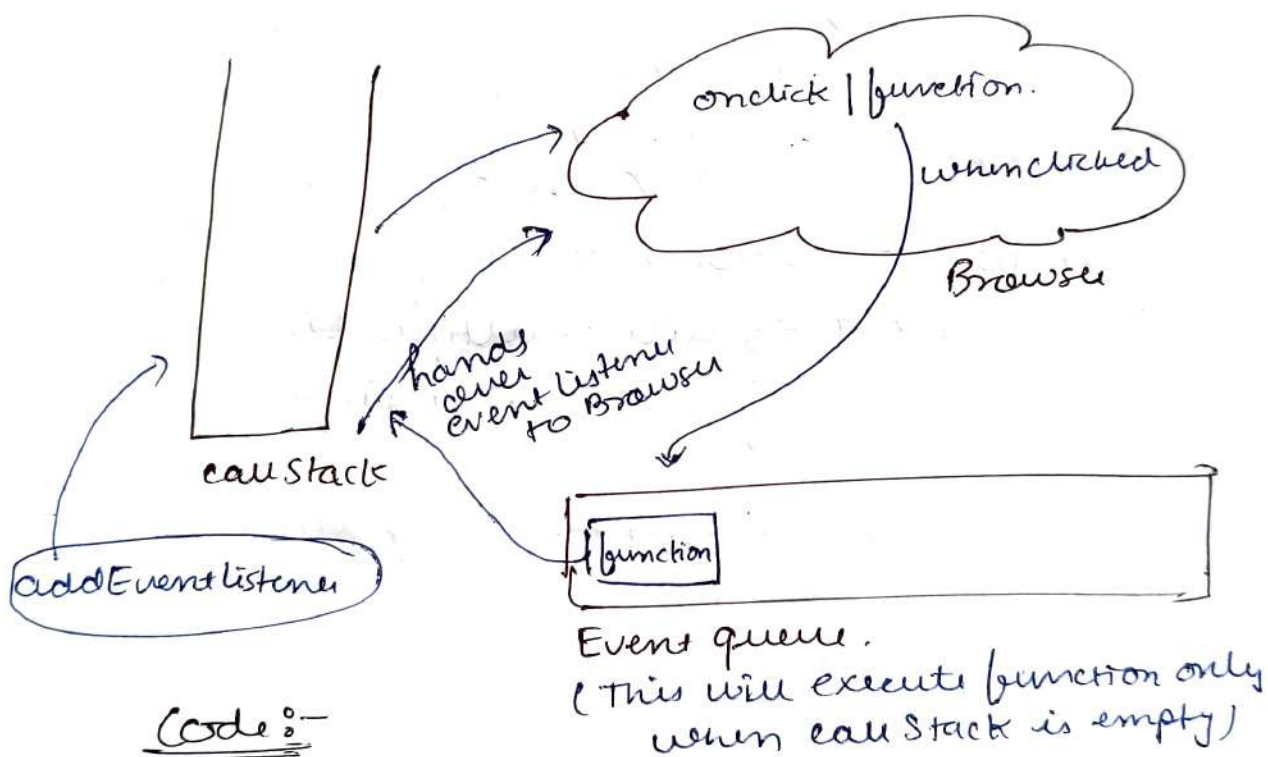 onclick | function.
when clicked
Browser
hands
over
event listener
to Browser
call Stack
function
addEventlistener
Event queue.
(This will execute function only
when call Stack is empty)
Code :-